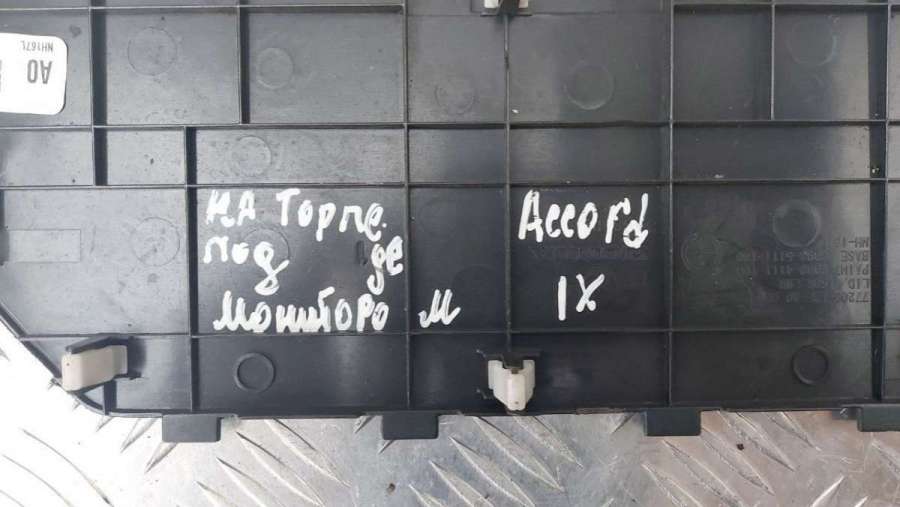 A0
NH167L
на Торпе
под де
монитором
Accord
IX
BASE